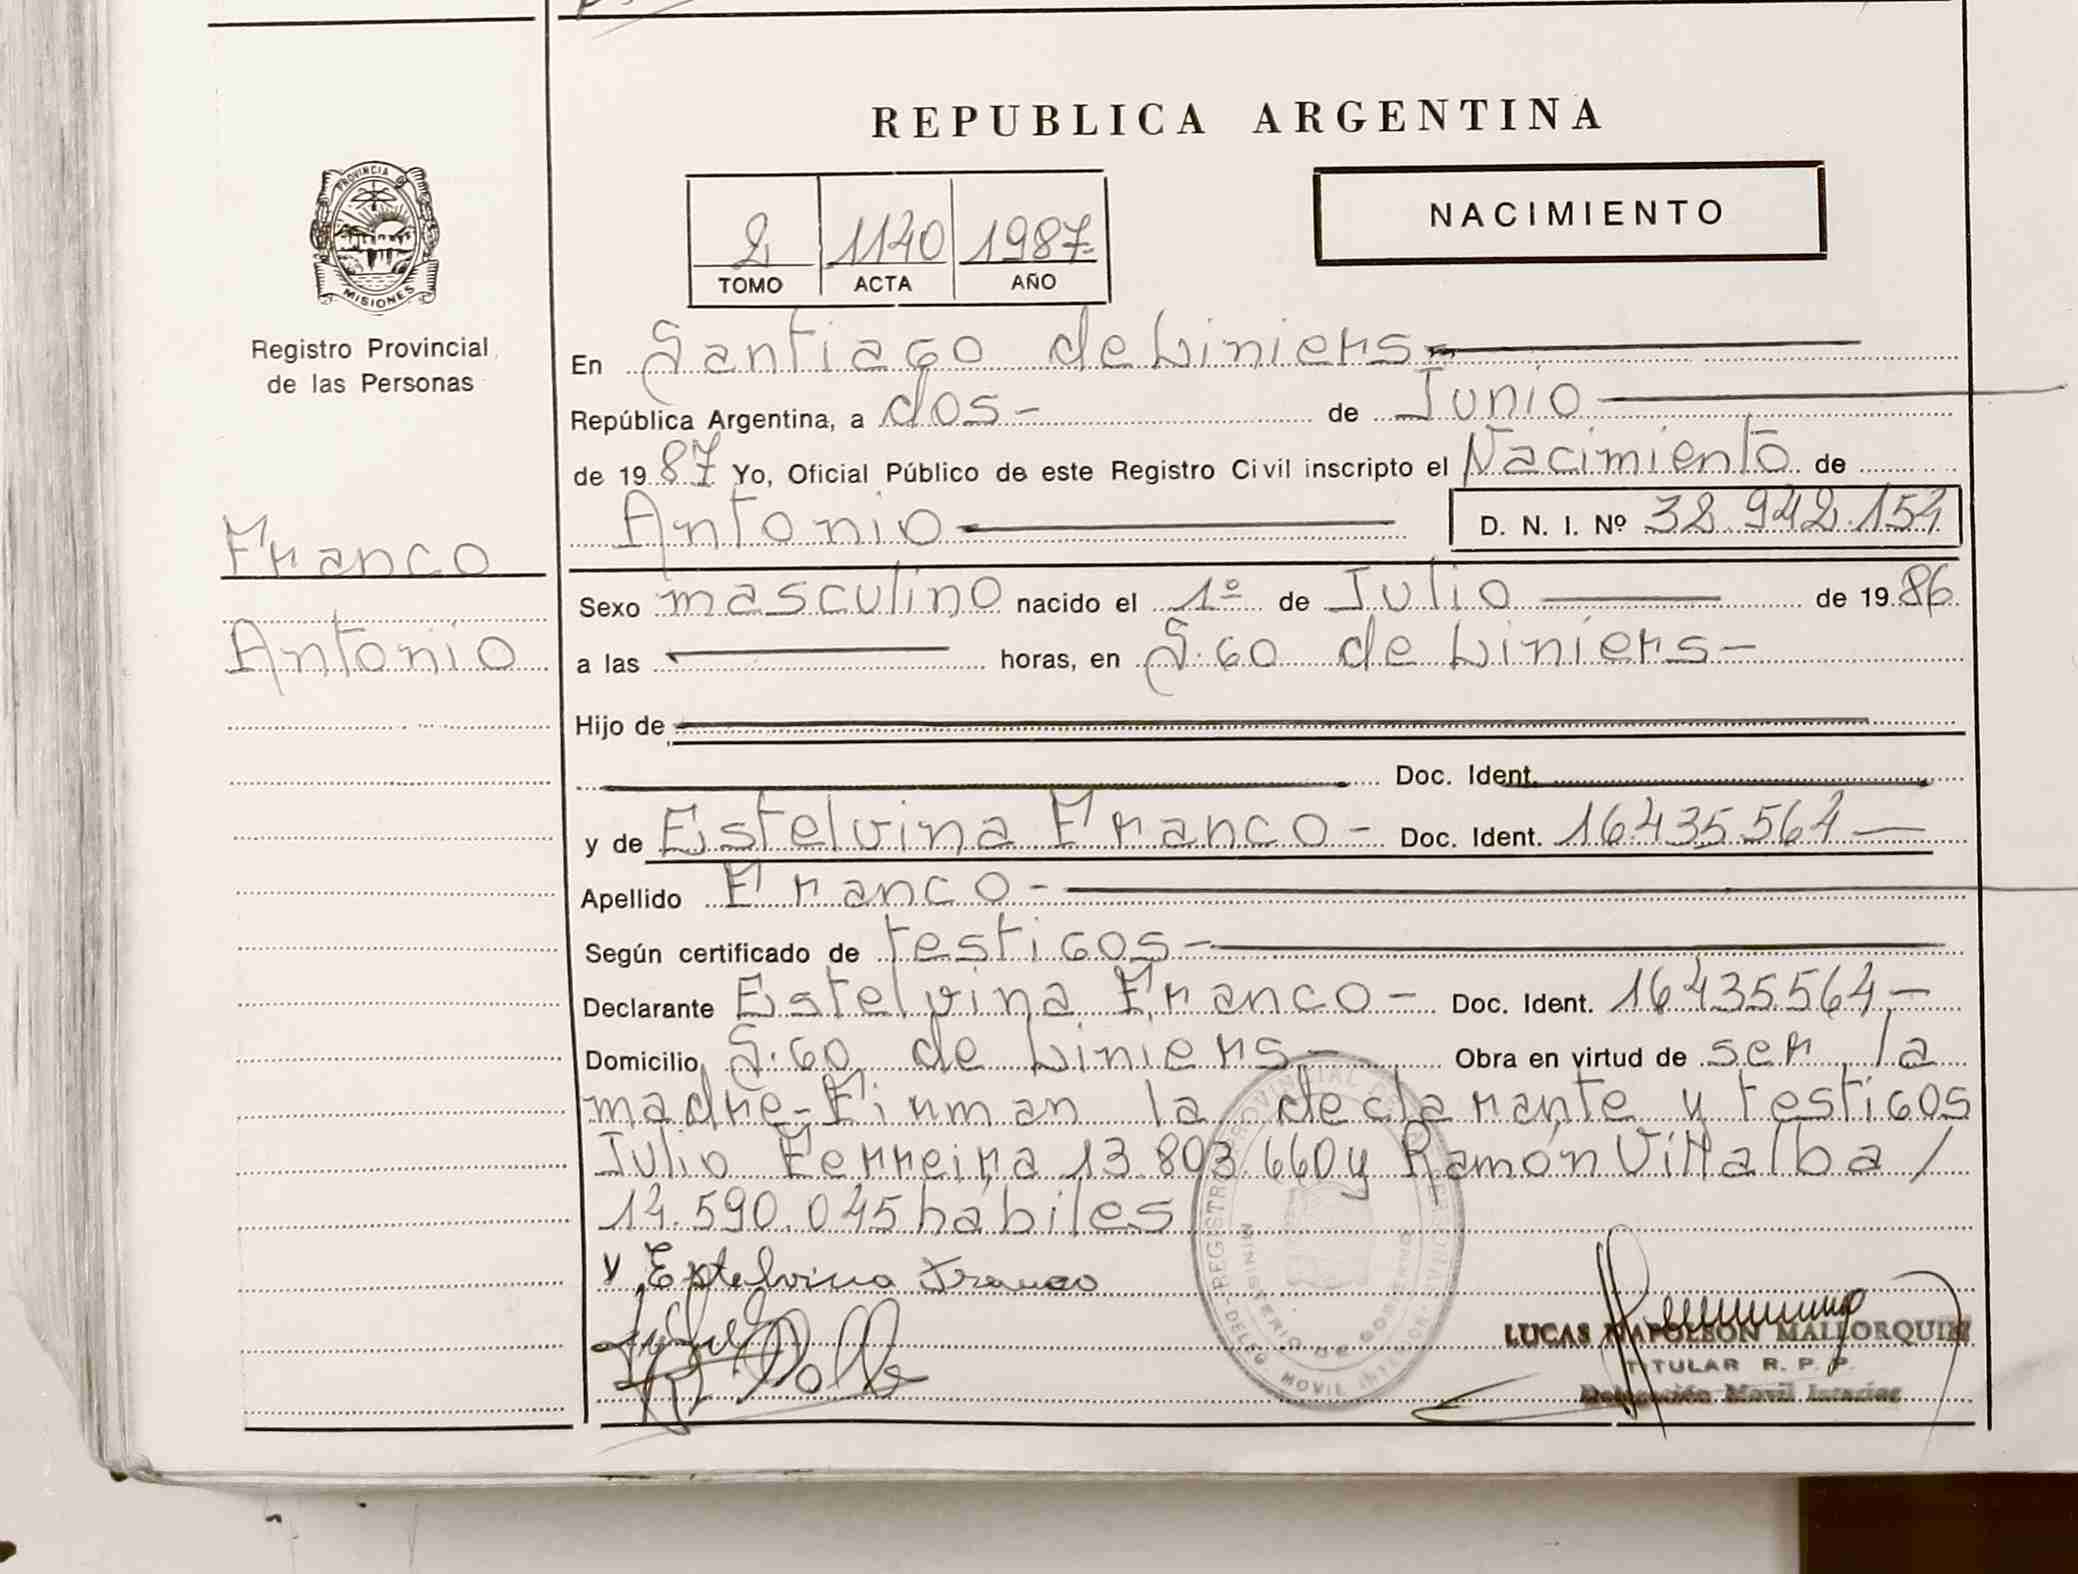 REPUBLICA ARGENTINA
NACIMIENTO
2 1140 1987
TOMO ACTA AÑO
PROVINCIA DE MISIONES
Registro Provincial
de las Personas
Franco
Antonio
En Santiago de Liniers
República Argentina, a dos de Junio
de 1987 Yo, Oficial Público de este Registro Civil inscripto el Nacimiento de
Antonio D. N. I. Nº 32.942.154
Sexo masculino nacido el 1º de Julio de 1986
a las horas, en S.Go de Liniers
Hijo de
Doc. Ident.
y de Estelvina Franco Doc. Ident. 16.435.564
Apellido Franco
Según certificado de testigos
Declarante Estelvina Franco Doc. Ident. 16.435.564
Domicilio S.Go de Liniers Obra en virtud de ser la
madre-Firman la declarante y testigos
Julio Ferreira 13.803.660 y Ramón Villalba /
14.590.045 hábiles
Estelvina Franco
LUCAS NAPOLEON MALLORQUIN
TITULAR R. P. P.
Delegación Movil Interior
REGISTRO PROVINCIAL DE
MINISTERIO DE GOBIERNO
DELEG MOVIL INTERIOR